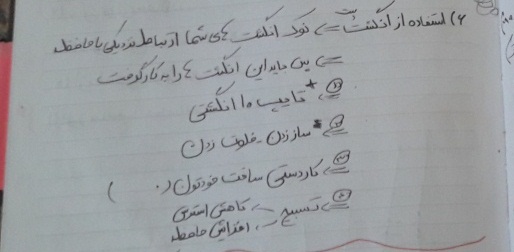 ۶) استفاده از انگشتان => نوک انگشت های شما ارتباط نزدیکی با حافظه
=> پس باید این انگشت ها را به کار گرفت
=> ① * تایپ ۱۰ انگشتی
=> ② * ساز زدن - فلوت زدن
=> ③ کاردستی ساخت خودتون (. )
=> ④ تسبیح -> کاهش استرس
-> افزایش حافظه